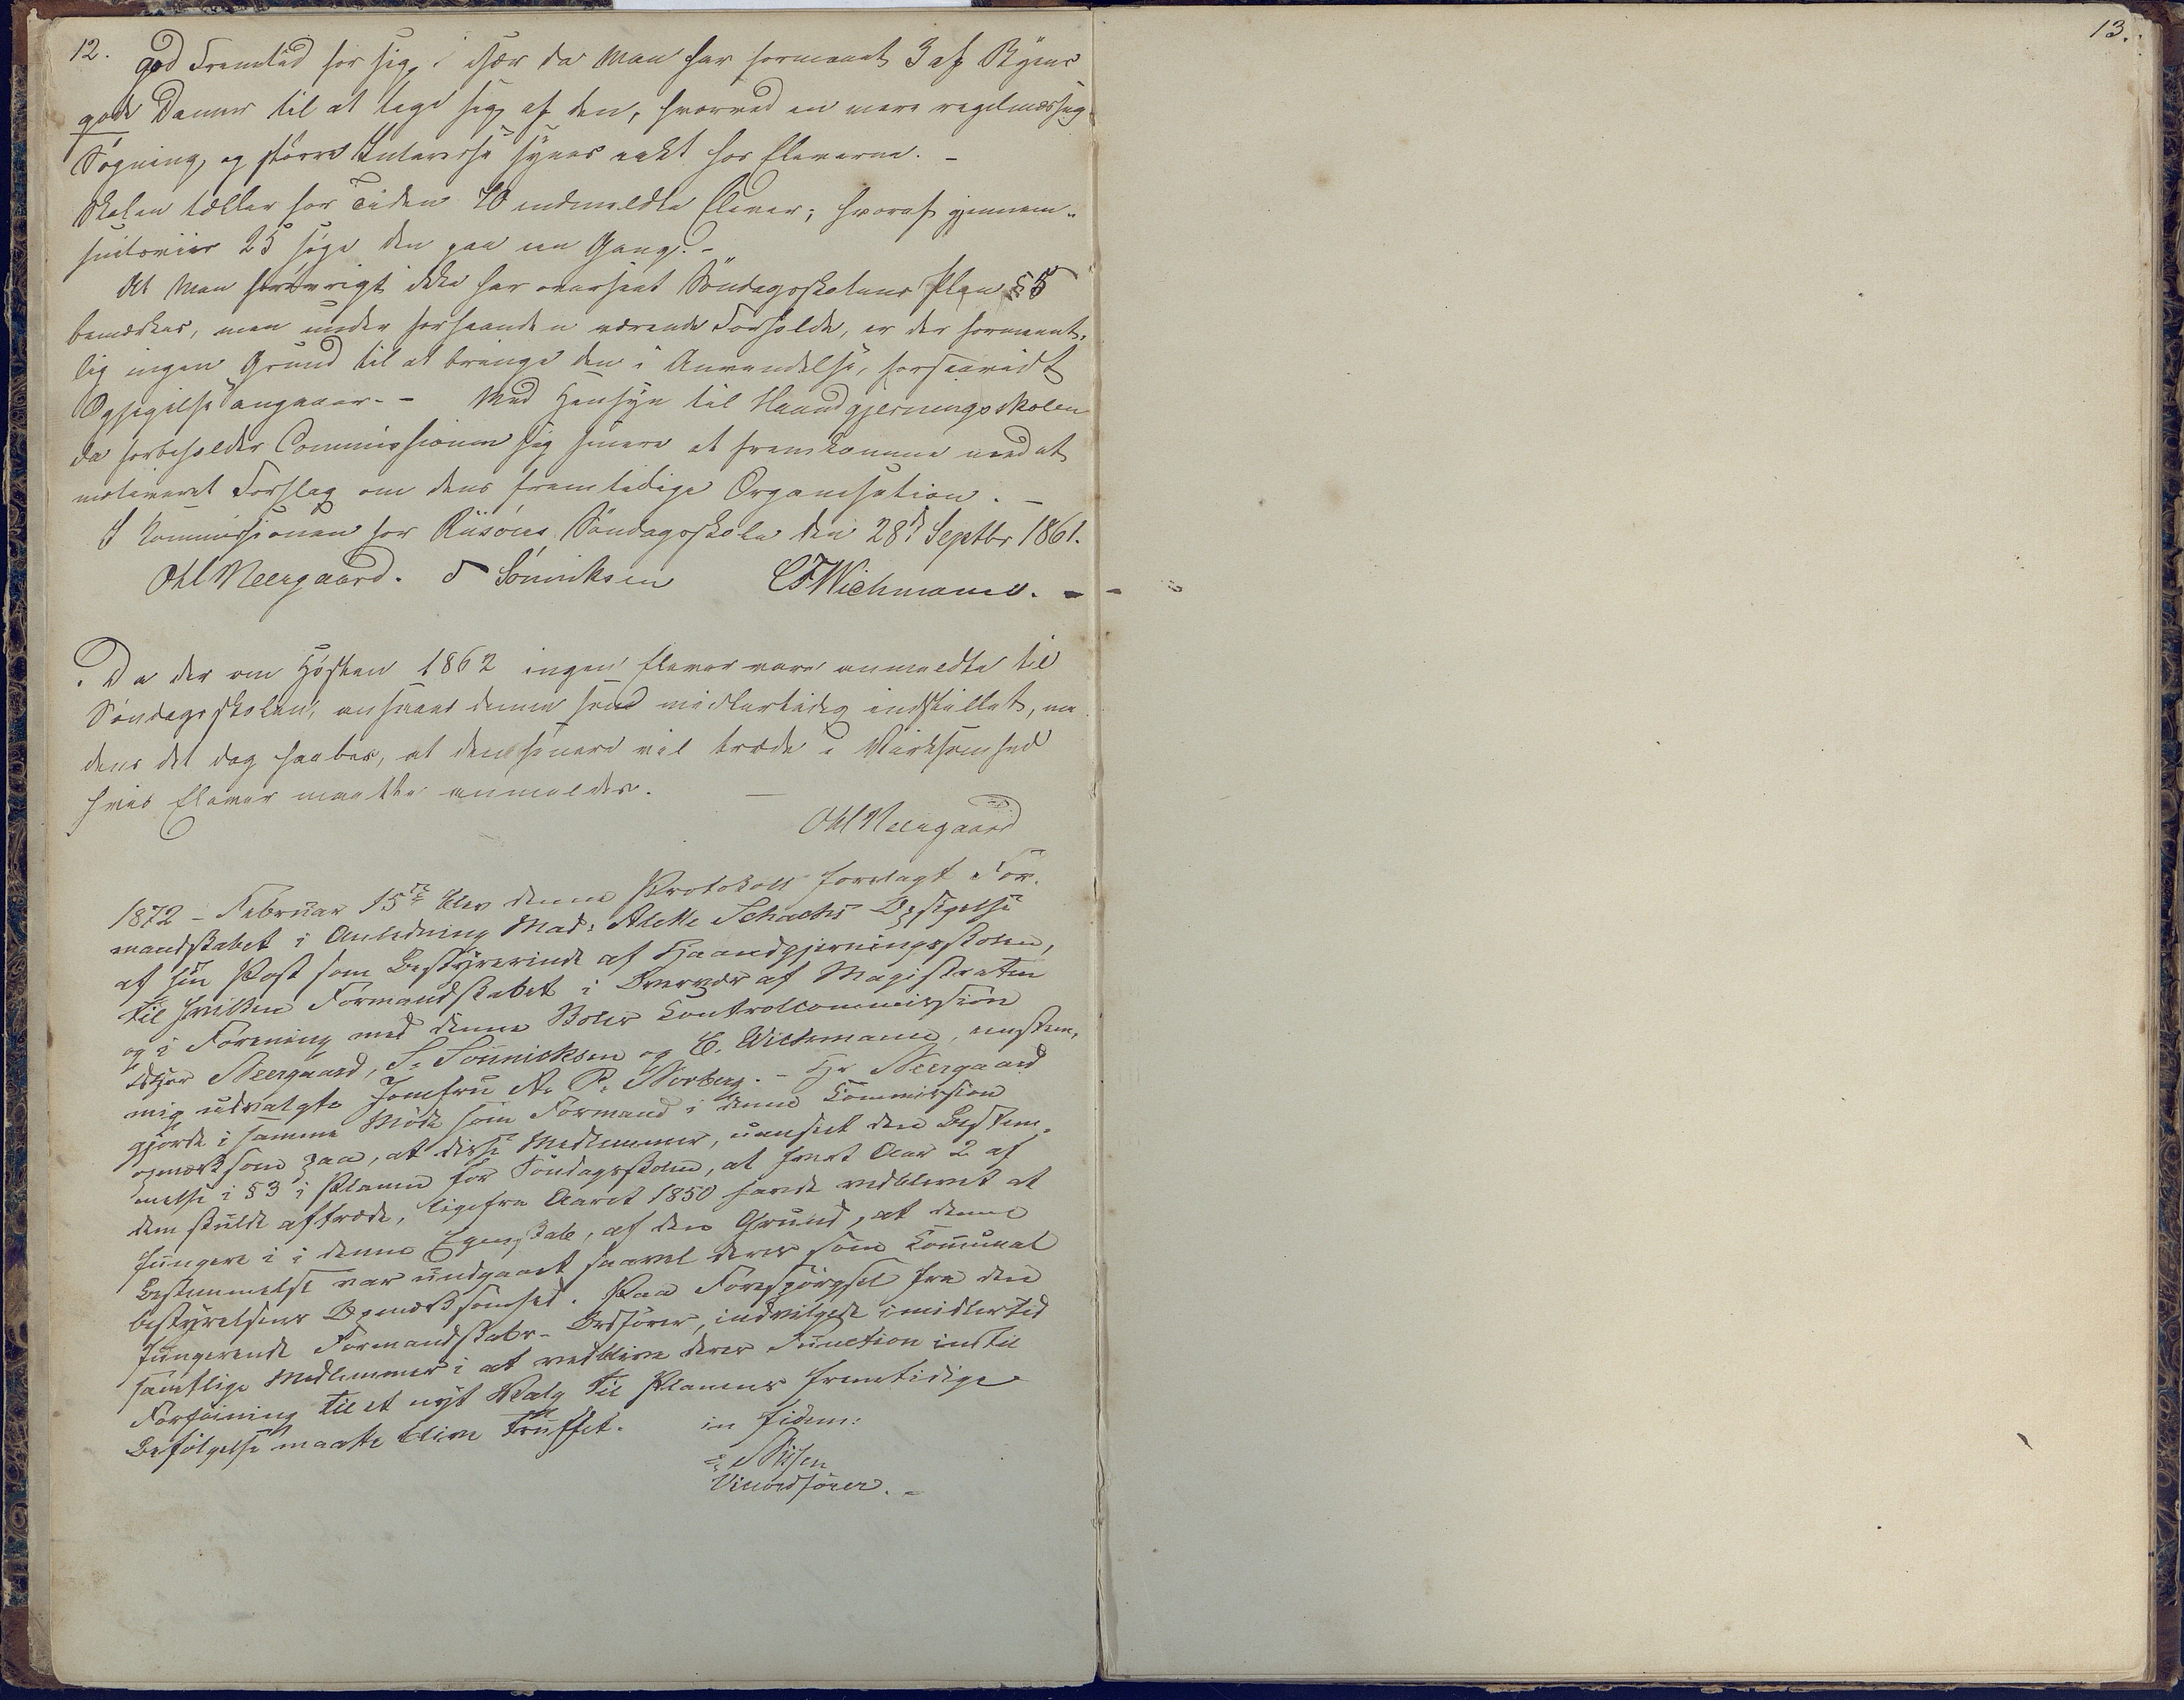 12. god Fremtid for sig, især da Man har formaaet 3 af Byens
gode Damer til at tage sig af den, hvorved en mere regelmæssig
Søgning, og større Interesse synes vakt hos Eleverne. -
Skolen tæller for Tiden 70 indmeldte Elever; hvoraf gjennem-
snitsviis 25 søge den paa een Gang. -
At Man forövrigt ikke har overseet Söndagsskolens Plan § 5
bemærkes, men under forhaanden værende Forholde, er der forment-
lig ingen Grund til at bringe den i Anvendelse, forsaavidt
Opsigelse angaaer. - Med Hensyn til Haandgjerningsskolen
da forbeholder Commissionen sig senere at fremkomme med et
motiveret Forslag om dens fremtidige Organisation. -
I Kommissionen for Riisörs Söndagsskole den 28d Septbr 1861.
OM Neergaard. S Sönniksen CF Wichmann. - -
Da der om Hösten 1862 ingen Elever vare anmeldte til
Söndagsskolen, ansaaes denne som midlertidig indstillet, me
dens det dog haabes, at den senere vil træde i Virksomhed
hvis Elever maatte anmeldes. -
OM Neergaard
1872 - Februar 15de blev denne Protokoll forelagt For-
mandskabet i Anledning Mad: Alette Schachts Opsigelse
af sin Post som Bestyrerinde af Haandgjerningsskolen,
til hvilken Formandskabet i Overvær af Magistraten
og i Forening med denne Skoles Controlcommission
DHrr Neergaard, S. Sönnichsen og C. Wichmann, eenstem-
mig udvalgte Jomfru A. P. Norberg. - Hr Neergaard
gjorde i samme Möde som Formand i denne Commission
opmærksom paa, at disse Medlemmer, uanseet den Bestem-
melse i § 3 i Planen for Söndagsskolen, at hvert Aar 2 af
dem skulde aftræde, ligefra Aaret 1850 havde vedblevet at
fungere i i denne Egenskab, af den Grund, at denne
Bestemmelse var undgaaet saavel deres som Communal
bestyrelsens Opmærksomhed. Paa Forespörgsel fra den
fungerende Formandskabs-Ordförer, indvilgede imidlertid
samtlige Medlemmer i at vedblive deres Function indtil
Forföining til et nyt Valg til Planens fremtidige
Befölgelse maatte blive truffet. in fidem:
Viceordförer. -
13.